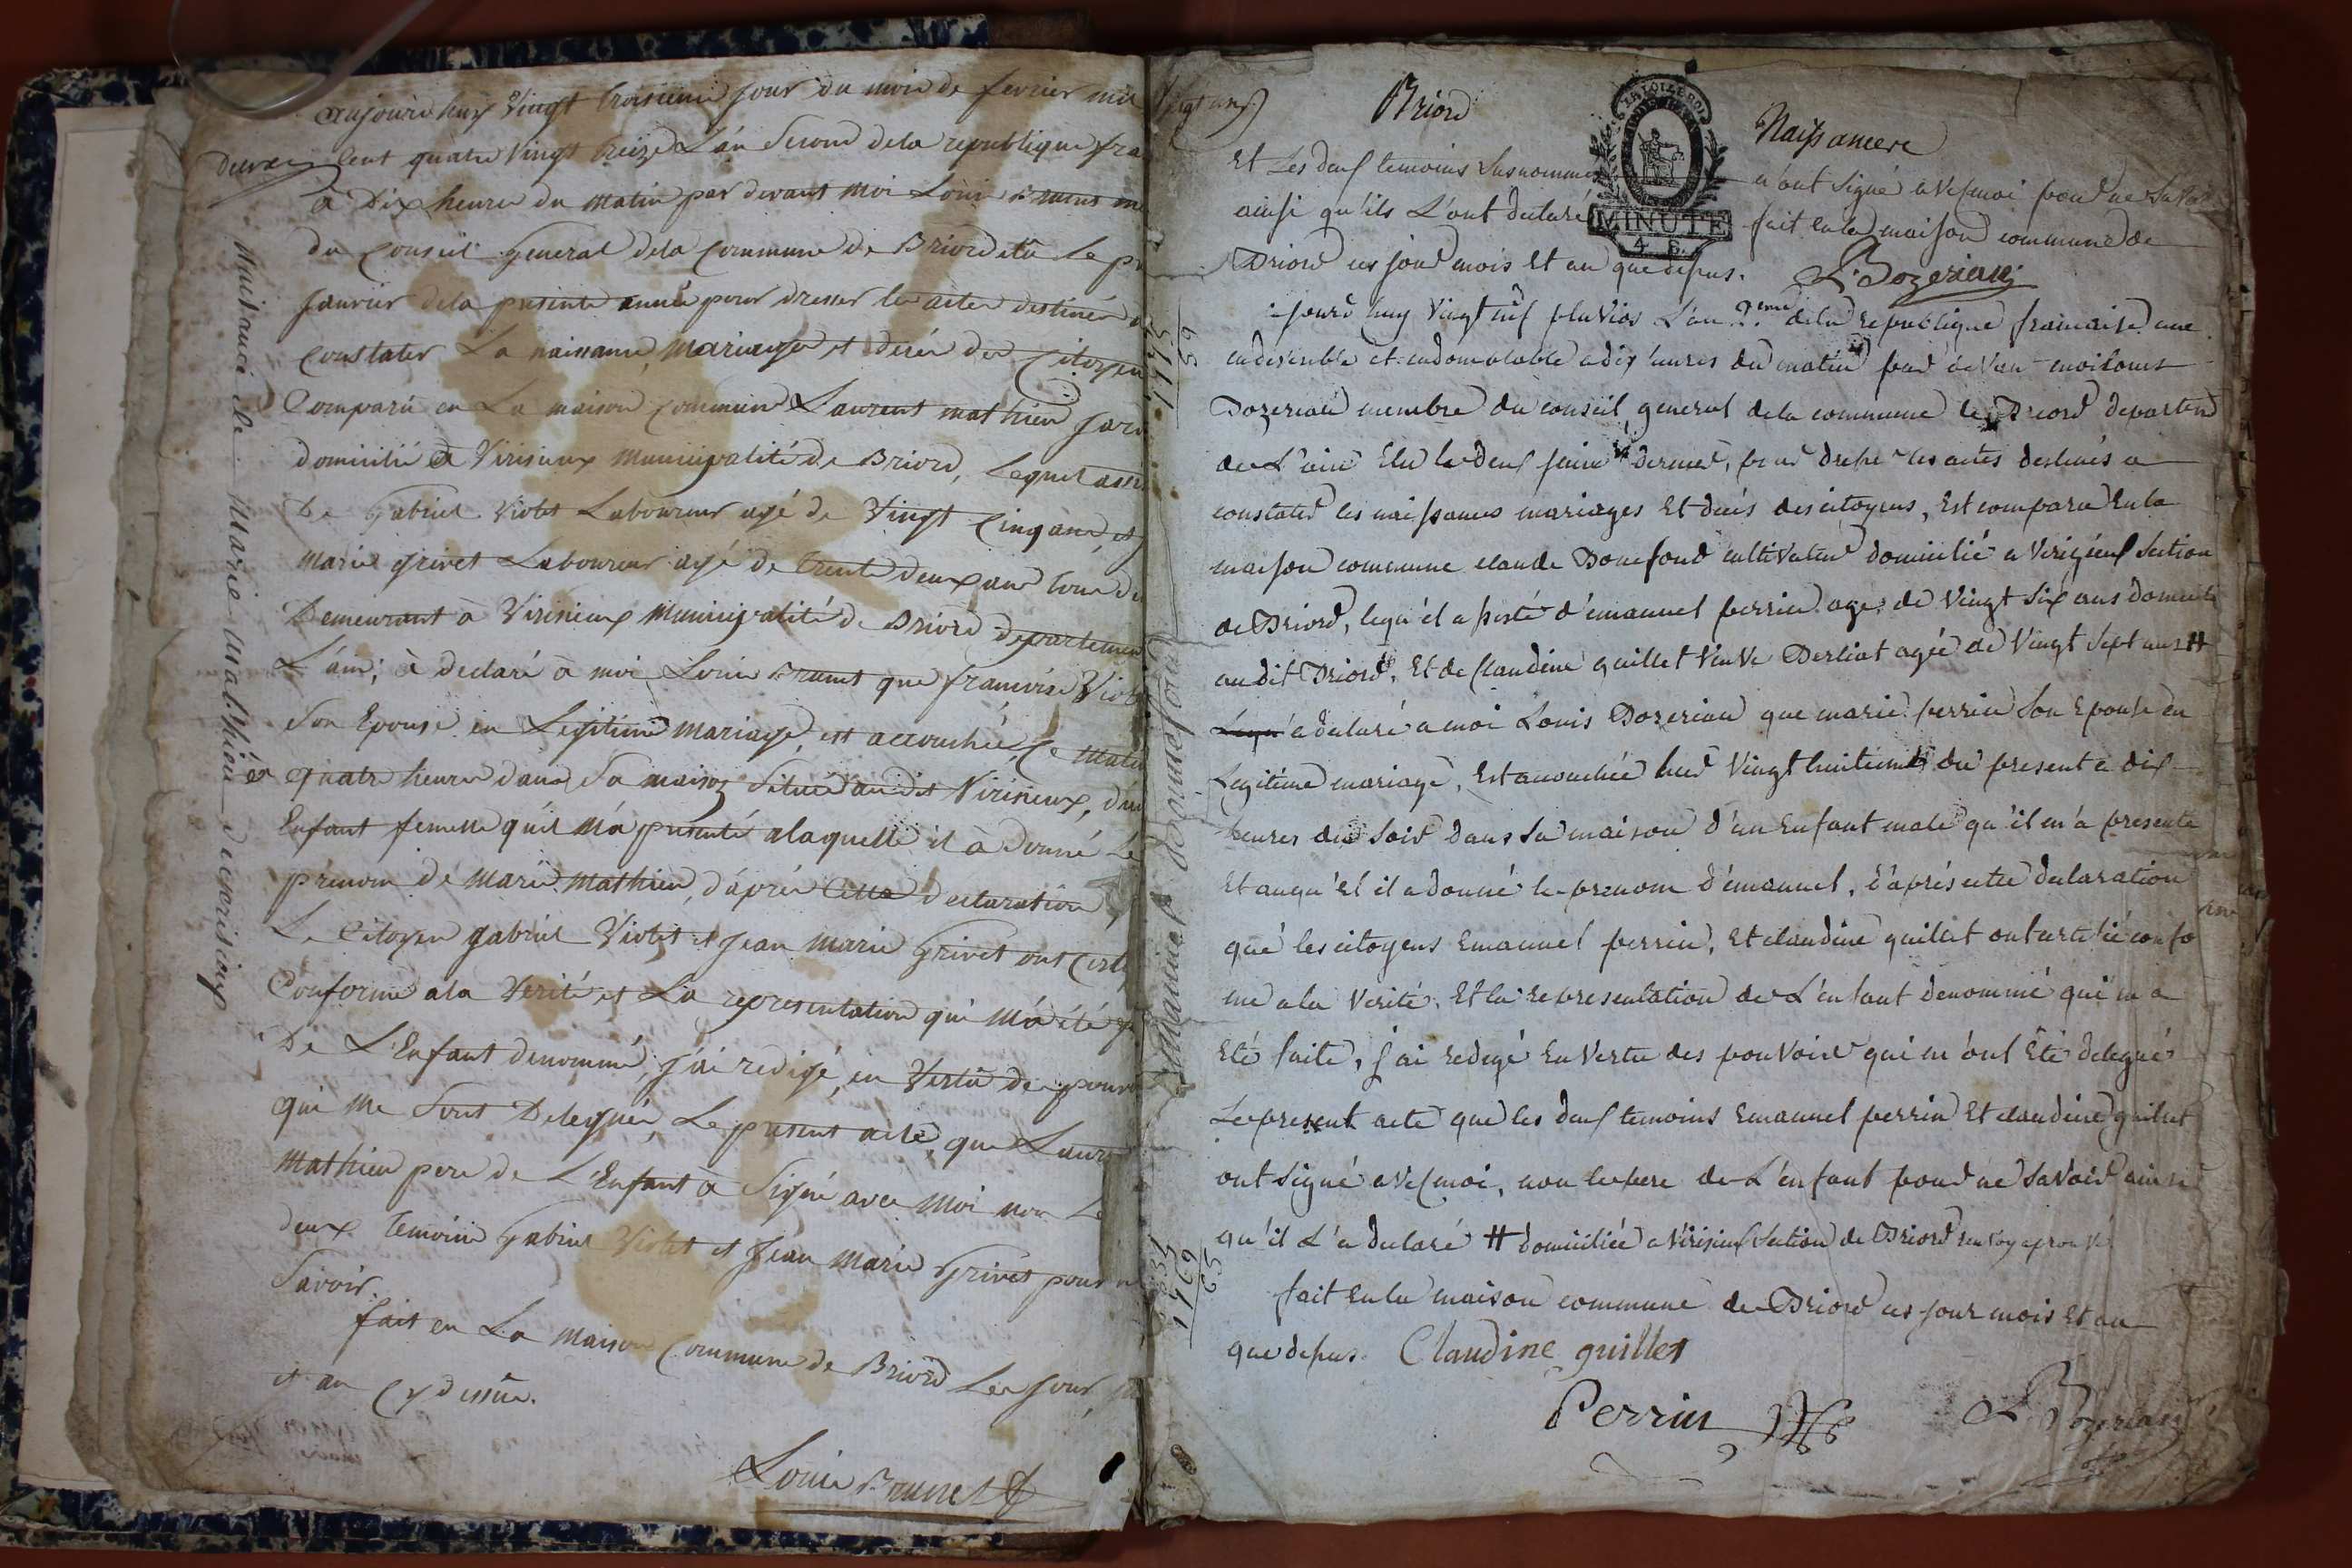 aujourdhuy Vingt troisieme jour du mois de fevrier mil
deux
cent quatre Vingt treize L'an Second dela republique fra
à Dix heures du matin par devant moi Louis Brunet me
du Conseil general dela Commune de Briord élu le pr
janvier dela presente année pour dresser les actes destinés a
Constater La naissance, mariages et deces des Citoyens
Comparu en La maison Commune Laurent mathieu
domicilié à Virisieux Municipalité de Briord, lequel assi
De gabriel Violet Laboureur agé de Vingt Cinq ans, et
Marie grivet Laboureur agé de trente deux ans tous de
Demeurant à Virisieux Municipalité de Briord departemen
L'ain; à declaré à moi Louis Brunet que francoise Viol
Son Epouse en Legitime mariage, est accouchée, Ce matin
quatre heures dans Sa maison Située audit Virisieux, d'un
Enfant femelle qu'il m'a presenté alaquelle il à donné Le
prenom de Marie Mathieu, d'aprés Cette declaration
Le Citoyen gabriel Violet et jean marie Grivet ont Certi
Conforme ala Verité et La representation qui m'a été
De L'Enfant denommé, j'ai redigé, en Vertû des pouvo
qui me Sont Delegués, Le present acte, que Laur
Mathieu pere de L'Enfant a Signé avec moi non Le
deux temoins gabriel Violet et jean Marie Grivet pour
Savoir.
fait en La maison Commune de Briord Les jour,
et an Cy dessus.
Louis Brunet
Naissance de Marie Mathieu
Briord
Naissance
LA LOI LE ROI
MINUTE
4. S.
Et Les deux temoins Susnommés n'ont Signé avec moi pour ne Savoir
ainsi qu'ils L'ont declaré fait enla maison commune de
Briord ces jour mois Et an que depus. L. Bozerian
jourd'huy Vingt neuf pluvios L'an 2eme dela republique francaise une
indivisible et indomptable a dix heures du matin par devan moi Louis
Bozerian membre du conseil general dela commune de Briord departem
de L'ain Elu le deux janvier dernier, pour dresser les actes destinés a
constater les naissances mariages Et decés des citoyens, Est comparu En la
maison commune claude Bonefond cultivateur domicilié a Virizieux Section
de Briord, lequ'él assisté d'émanuel perrin agé de Vingt Six ans domicilié
au dit Briord, Et de Claudine guillet Veuve Derliat agée de Vingt Sept ans #
a declaré a moi Louis Bozerian que marie perrin Son Epouse en
Legitime mariage, Est acouchée hier Vingt huitieme du present a dix
heures du Soir dans Sa maison d'un Enfant male qu'il m'a presenté
Et auqu'el il a donné le prenom d'émanuel, d'aprés cette declaration
que les citoyens Emanuel perrin, Et claudine guillet ont certifié confo
me ala Verité, Et la representation de L'enfant denommé qui m'a
Eté faite, j'ai redigé En Vertu des pouvoirs qui m'ont Eté delegué
Le present acte que les deux temoins Emanuel perrin Et claudine guillet
ont Signé avec moi, non le pere de L'enfant pour ne Savoir ainsi
qu'il L'a declaré # domiciliée a Virisieux Section de Briord renvoy aprouvé
fait En la maison commune de Briord ces jour mois Et an
que depus. Claudine guillet
Perrin
L. Bozerian
1793
59
Emanuel Bonnefond
1834
1769
65